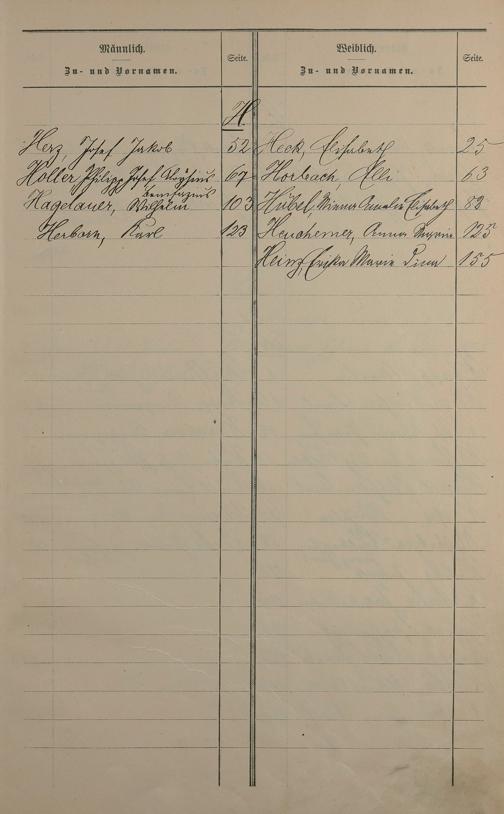 Männlich.
Zu- und Vornamen.
Seite.
Weiblich.
Zu- und Vornamen.
Seite.
H.
Herz, Josef Jakob 52
Holler, Philipp Josef Aloysius 67
Bonifazius
Hagelauer, Wilhelm 103
Herborn, Karl 123
Heck, Elisabeth 25
Horbach, Elli 63
Hübel, Minna Amalie Elisabeth 88
Heuchemer, Anna 125
Heinz, Erika Maria 155